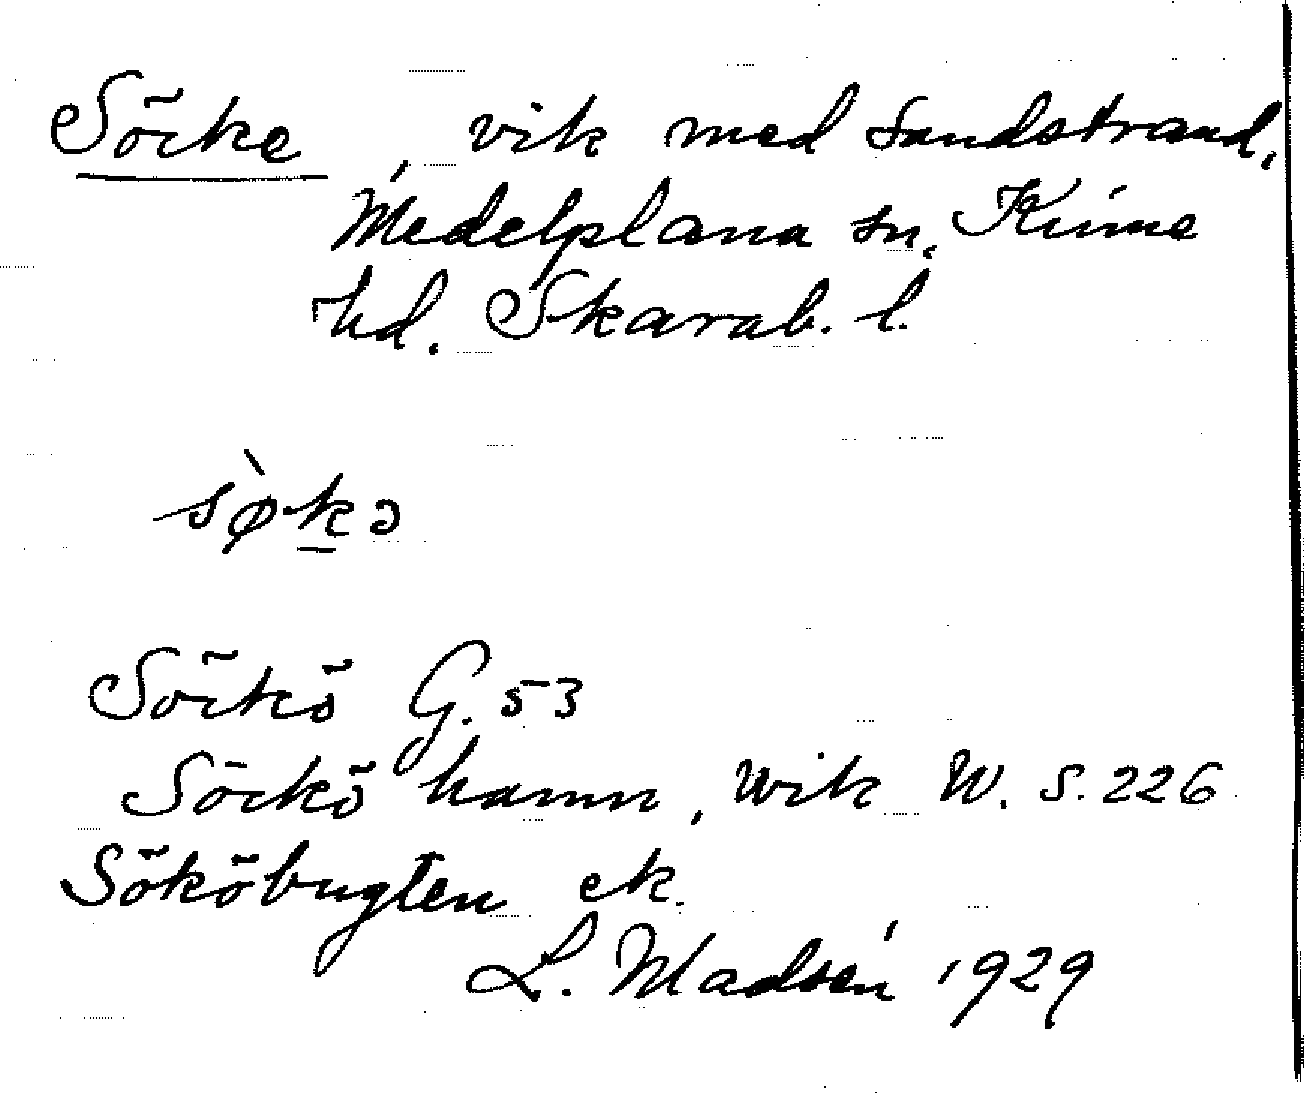 Söcke, vik med sandstrand,
Medelplana sn, Kinne
hd. Skarab. l.
sø̀kə
Söckö G. 53
Söckö hamn, wik W. S. 226
Sököbugten ek.
L. Madsén 1929